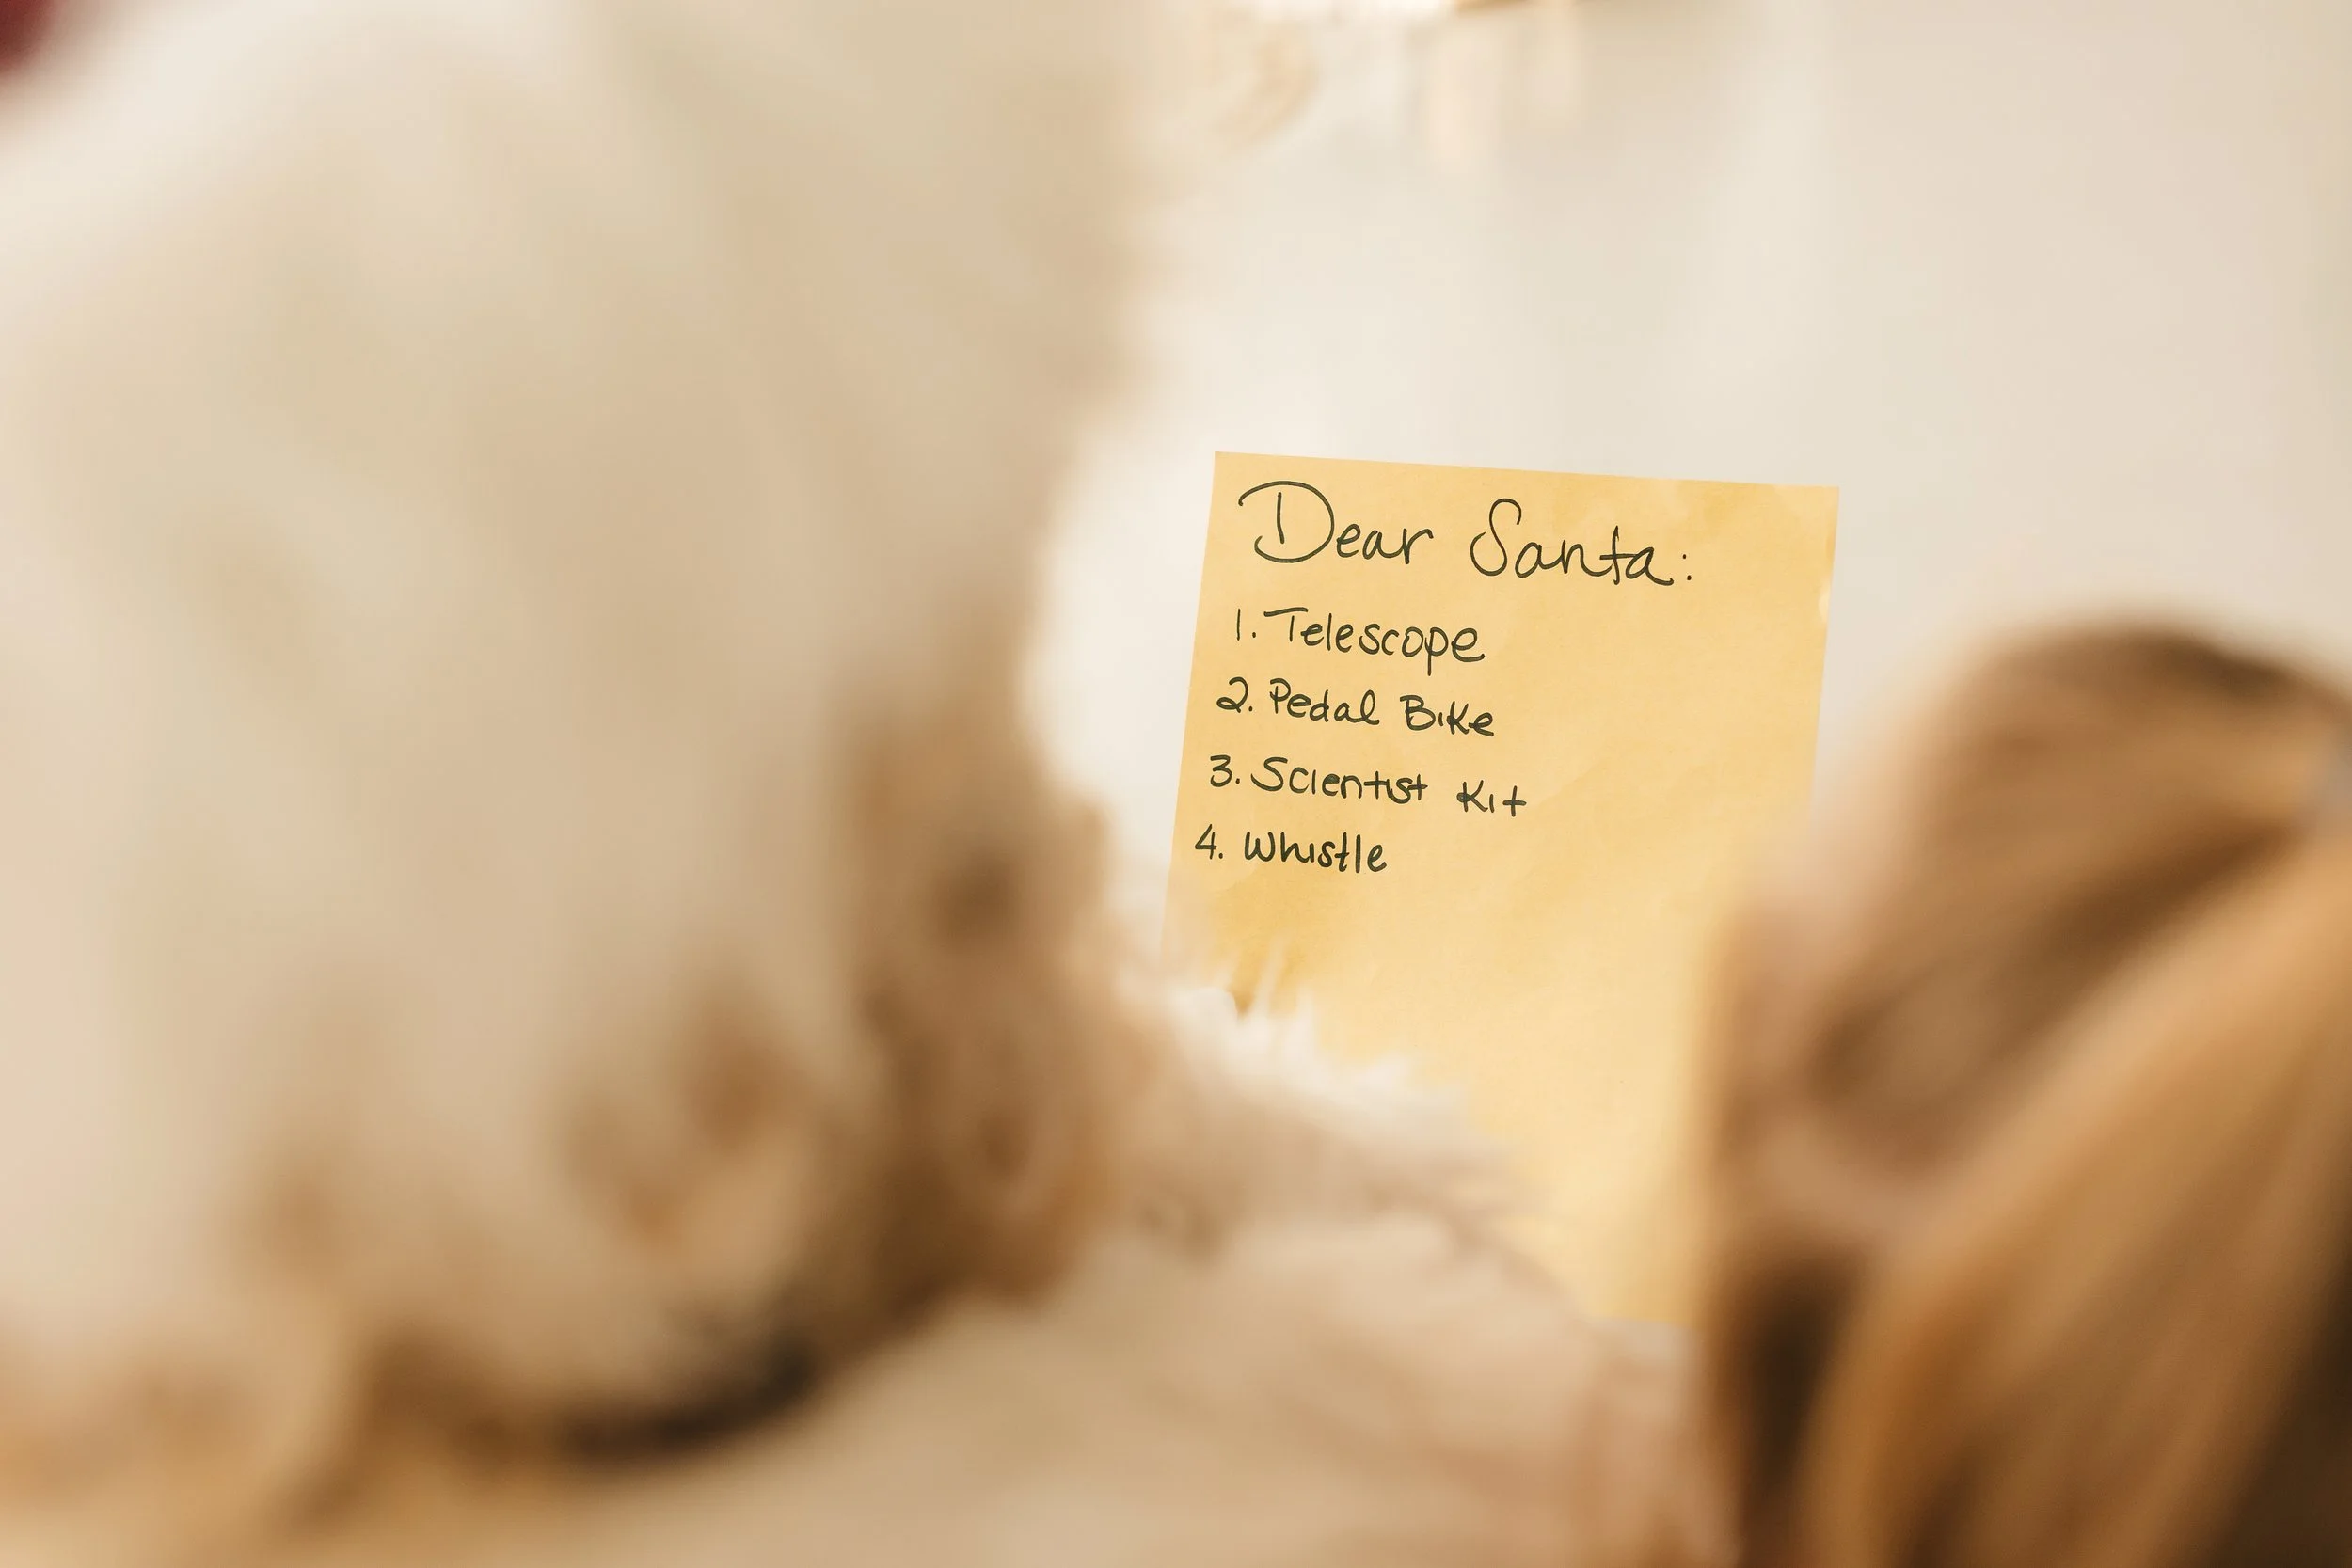 Dear Santa:
1. Telescope
2. Pedal Bike
3. Scientist Kit
4. Whistle